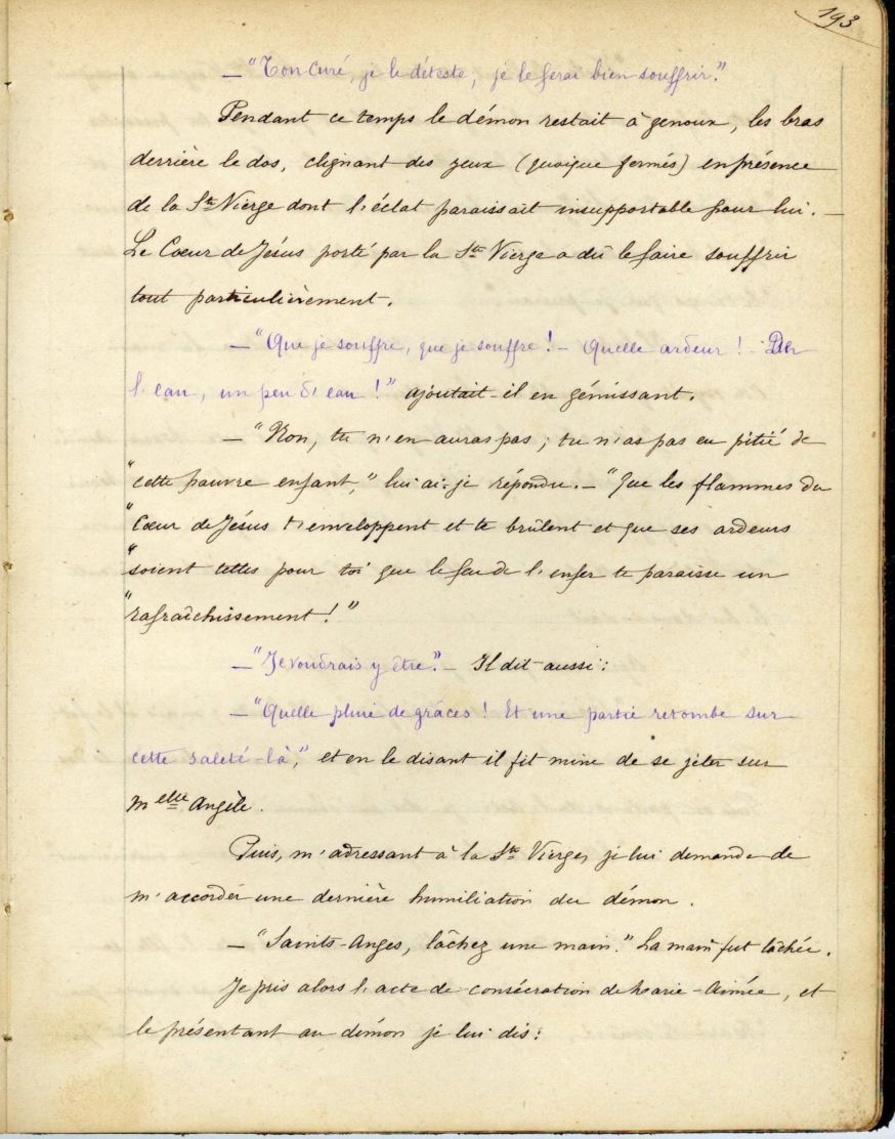 193
— "Ton curé, je le déteste, je le ferai bien souffrir."
Pendant ce temps le démon restait à genoux, les bras
derrière le dos, clignant des yeux (quoique fermés) en présence
de la Ste Vierge dont l'éclat paraissait insupportable pour lui. —
Le Cœur de Jésus porté par la Ste Vierge a dû le faire souffrir
tout particulièrement.
— "Que je souffre, que je souffre ! — Quelle ardeur ! — De
l'eau, un peu d'eau !" ajoutait-il en gémissant.
— "Non, tu n'en auras pas ; tu n'as pas eu pitié de
"cette pauvre enfant," lui ai-je répondu. — "Que les flammes du
"Cœur de Jésus t'enveloppent et te brûlent et que ses ardeurs
"soient telles pour toi que le feu de l'enfer te paraisse un
"rafraîchissement !"
— "Je voudrais y être." — Il dit aussi :
— "Quelle pluie de grâces ! Et une partie retombe sur
cette saleté-là," et en le disant il fit mine de se jeter sur
Melle Angèle.
Puis, m'adressant à la Ste Vierge, je lui demande de
m'accorder une dernière humiliation du démon.
— "Saints-Anges, lâchez une main." La main fut lâchée.
Je pris alors l'acte de consécration de Marie-Aimée, et
le présentant au démon je lui dis :